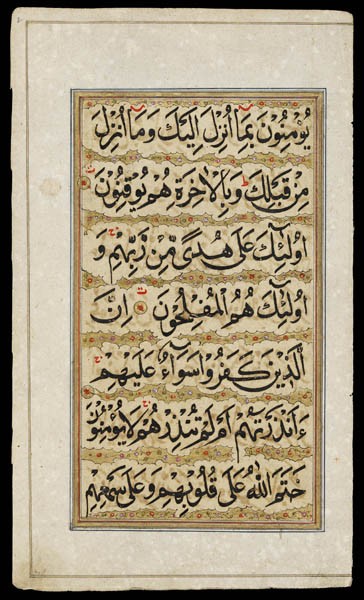 يُؤْمِنُوْنَ بِمَآ اُنْزِلَ اِلَيْكَ وَمَآ اُنْزِلَ
مِنْ قَبْلِكَ وَبِالْاٰخِرَةِ هُمْ يُوْقِنُوْنَ
اُولٰٓئِكَ عَلٰى هُدًى مِّنْ رَّبِّهِمْ وَ
اُولٰٓئِكَ هُمُ الْمُفْلِحُوْنَ اِنَّ
الَّذِيْنَ كَفَرُوْا سَوَآءٌ عَلَيْهِمْ
ءَاَنْذَرْتَهُمْ اَمْ لَمْ تُنْذِرْهُمْ لَا يُؤْمِنُوْنَ
خَتَمَ اللّٰهُ عَلٰى قُلُوْبِهِمْ وَعَلٰى سَمْعِهِمْ